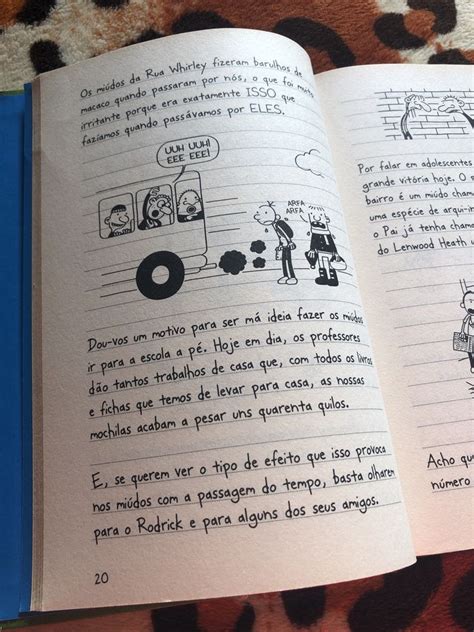 Os miúdos da Rua Whirley fizeram barulhos de
macaco quando passaram por nós, o que foi muito
irritante porque era exatamente ISSO que
fazíamos quando passávamos por ELES.
UUH UUH!
EEE EEE!
ARFA
ARFA
Dou-vos um motivo para ser má ideia fazer os miúdos
ir para a escola a pé. Hoje em dia, os professores
dão tantos trabalhos de casa que, com todos os livros
e fichas que temos de levar para casa, as nossas
mochilas acabam a pesar uns quarenta quilos.
E, se querem ver o tipo de efeito que isso provoca
nos miúdos com a passagem do tempo, basta olharem
para o Rodrick e para alguns dos seus amigos.
20
Por falar em adolescentes
grande vitória hoje. O
bairro é um miúdo chama
uma espécie de arqui-in
o Pai já tenha chama
do Lenwood Heath
Acho qu
número